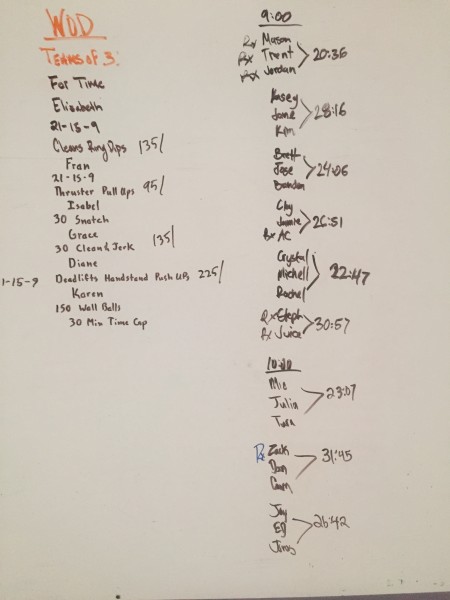 WOD
TEAMS OF 3:
For Time
Elizabeth
21-15-9
Cleans Ring Dips 135/
Fran
21-15-9
Thruster Pull Ups 95/
Isabel
30 Snatch
Grace
30 Clean & Jerk 135/
Diane
1-15-9 Deadlifts Handstand Push UPs 225/
Karen
150 Wall Balls
30 Min Time Cap
9:00
Rx Mason
Rx Trent 20:36
Rx Jordan
Kasey
Jame 28:16
Kim
Brett
Jose 24:06
Brandon
Clay
Jamie 26:51
Rx AC
Crystal
Michell 22:47
Rachel
Rx Steph 30:57
Rx Juice
10:00
Mie
Julia 23:07
Tara
Rx Zack
Dan 31:45
Cam
Jay
Ed 26:42